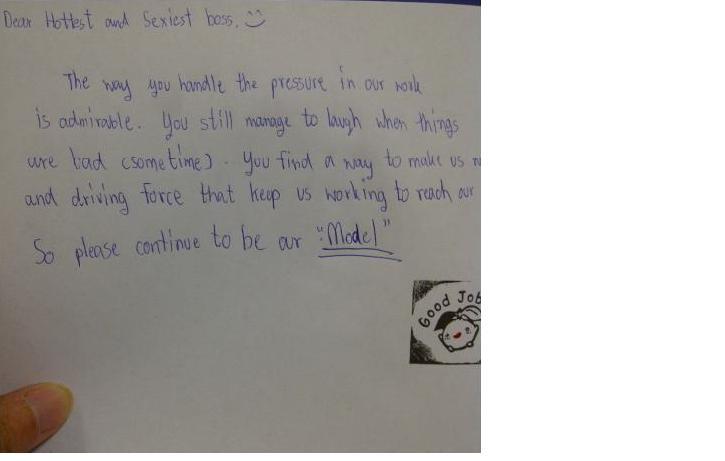 Dear Hottest and Sexiest boss. :)
The way you handle the pressure in our work
is admirable. You still manage to laugh when things
are bad (sometime). You find a way to make us
and driving force that keep us working to reach our
So please continue to be our "Model"
Good Job